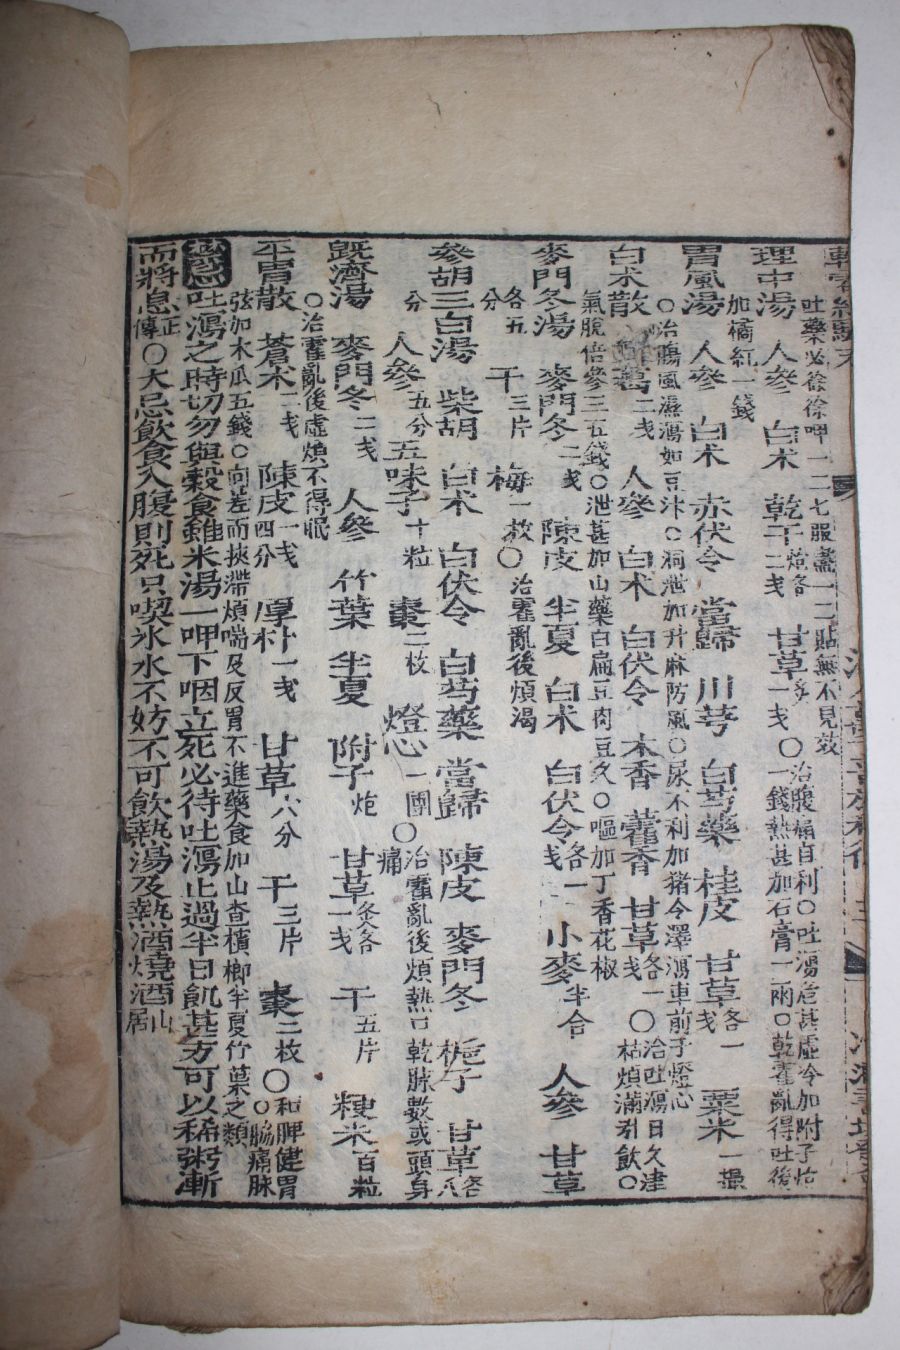 吐藥必徐徐呷一二七服盡一二貼無不見效
理中湯 人參 白朮 乾干炮各二戋 甘草炙一戋〇治腹痛自利〇吐瀉危甚虛冷加附子炮一錢熱甚加石膏一兩〇乾霍亂得吐後
加橘紅一錢
胃風湯 人參 白朮 赤伏令 當歸 川芎 白芍藥 桂皮 甘草各一戋 粟米一撮
〇治腸風濕瀉如豆汁〇洞泄加升麻防風〇尿不利加猪令澤瀉車前子燈心
白朮散 葛二戋 人參 白朮 白伏令 木香 藿香 甘草各一戋〇治吐瀉日久津枯煩滿引飮〇
氣脫倍參三五錢〇泄甚加山藥白扁豆肉豆久〇嘔加丁香花椒
麥門冬湯 麥門冬二戋 陳皮 半夏 白朮 白伏令各一戋 小麥半合 人參 甘草
各五分 干三片 梅一枚〇治霍亂後煩渴
參胡三白湯 柴胡 白朮 白伏令 白芍藥 當歸 陳皮 麥門冬 梔子 甘草各八
分 人參五分 五味子十粒 棗二枚 燈心一團〇治霍亂後煩熱口乾脉數或頭身痛
旣濟湯 麥門冬二戋 人參 竹葉 半夏 附子炮 甘草炙各一戋 干五片 粳米百粒
〇治霍亂後虛煩不得眠
平胃散 蒼朮二戋 陳皮一戋四分 厚朴一戋 甘草六分 干三片 棗二枚〇和脾健胃〇脇痛脉
弦加木瓜五錢〇向差而挾滯煩喘及反胃不進藥食加山査檳榔半夏竹葉之類
吐瀉之時切勿與穀食雖米湯一呷下咽立死必待吐瀉止過半日飢甚方可以稀粥漸
而將息正傳〇大忌飮食入腹則死只喫氷水不妨不可飮熱湯及熱酒燒酒